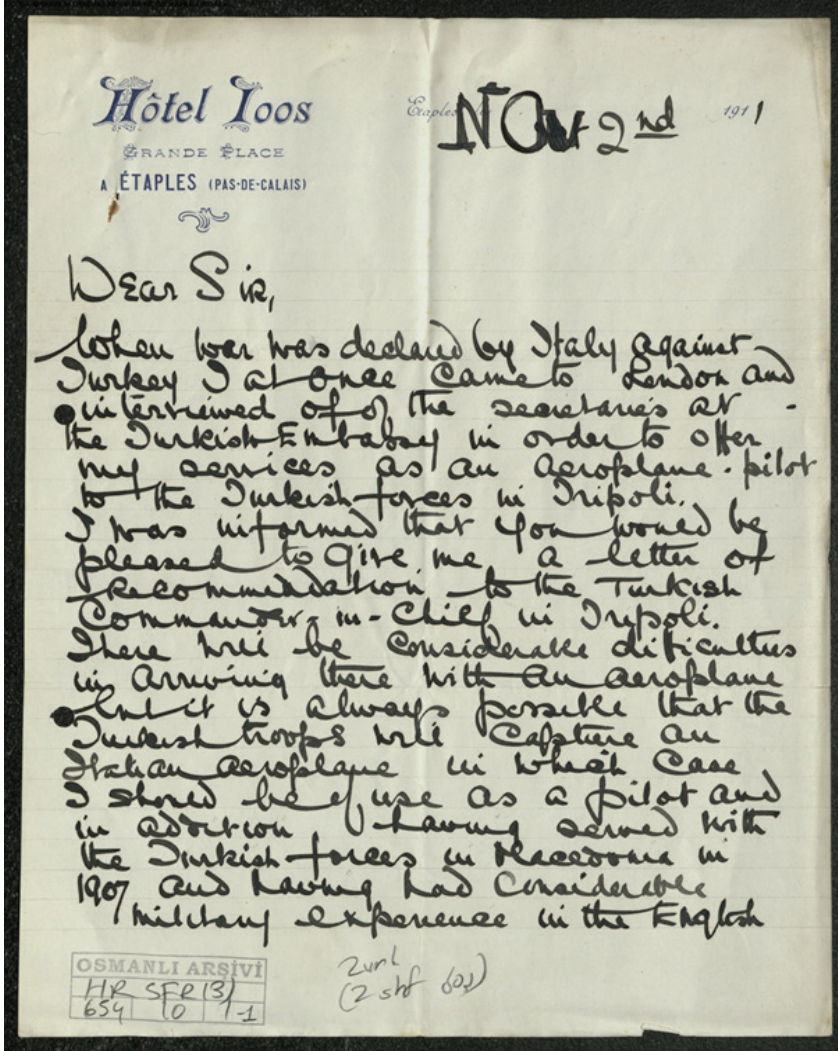 Hôtel Ioos
GRANDE PLACE
A ÉTAPLES (PAS-DE-CALAIS)
Etaples, NOV 2nd 1911
Dear Sir,
When war was declared by Italy against
Turkey I at once came to London and
interviewed of of the secretaries at
the Turkish Embassy in order to offer
my services as an aeroplane-pilot
to the Turkish forces in Tripoli.
I was informed that you would be
pleased to give me a letter of
recommendation to the Turkish
Commander-in-Chief in Tripoli.
There will be considerable difficulties
in arriving there with an aeroplane
but it is always possible that the
Turkish troops will capture an
Italian aeroplane in which case
I should be of use as a pilot and
in addition, having served with
the Turkish forces in Macedonia in
1907 and having had considerable
military experience in the English
OSMANLI ARŞİVİ
HR SFR (3)
654 10 1-1